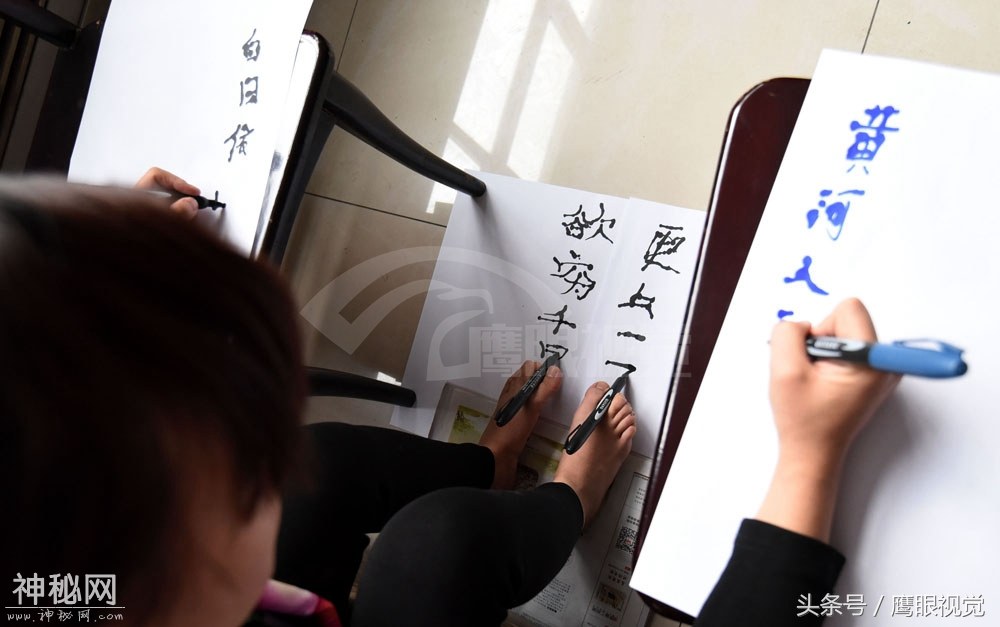 白日依
欲穷千
更上一
黄河入
鹰眼视觉
神秘网
www.神秘网.com
头条号 / 鹰眼视觉